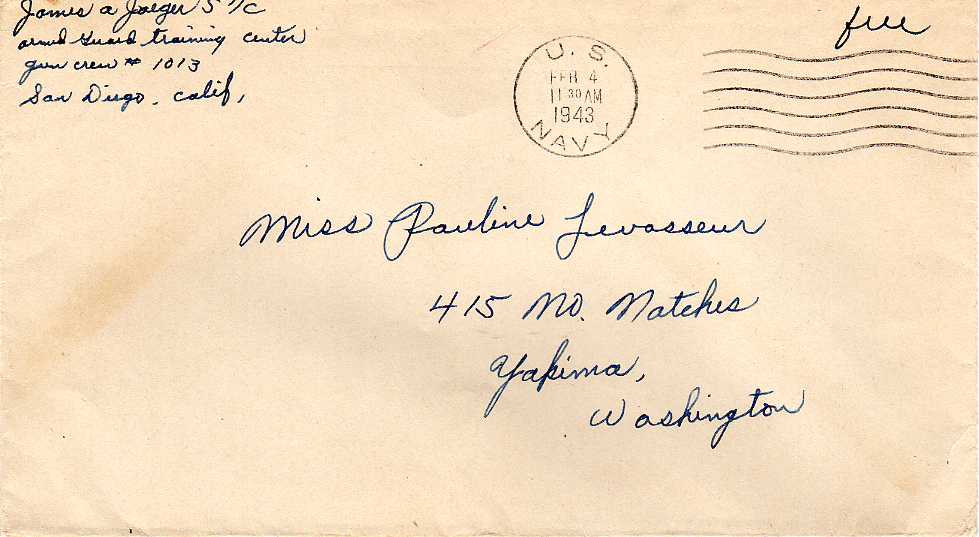 James a Jaeger S 1/C
armed Guard training center
gun crew # 1013
San Diego, Calif,
free
U. S.
FEB 4
11 30 AM
1943
NAVY
Miss Pauline Levasseur
415 No. Natches
Yakima,
Washington